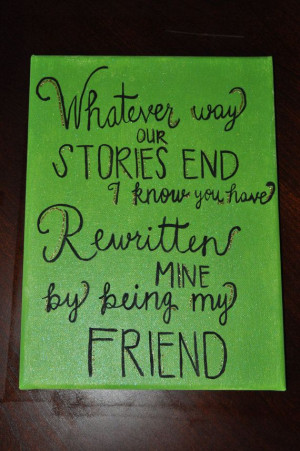 Whatever way
OUR
STORIES END
I know you have
Rewritten
MINE
by being my
FRIEND